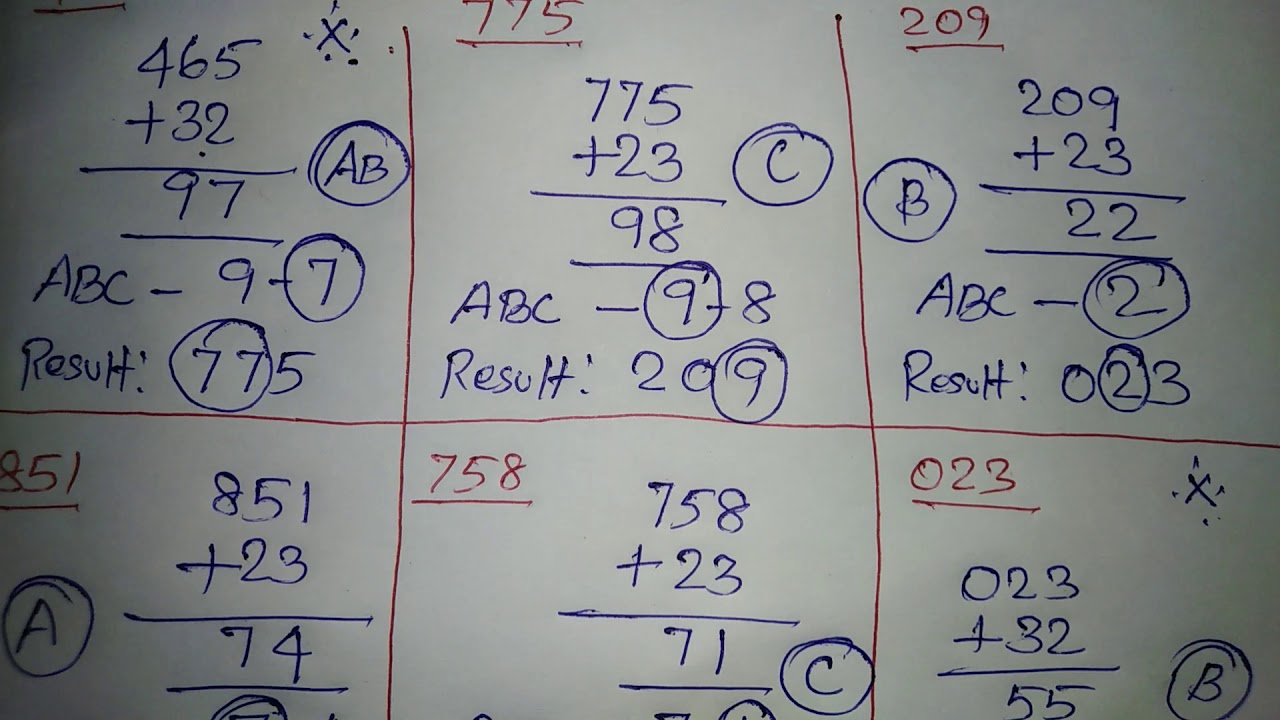 465
X
+32
AB
97
ABC - 9-7
Result: 775
775
775
+23
C
98
ABC - 9-8
Result: 209
209
209
+23
B
22
ABC - 2
Result: 023
851
851
+23
A
74
758
758
+23
71
C
023
X
023
+32
55
B